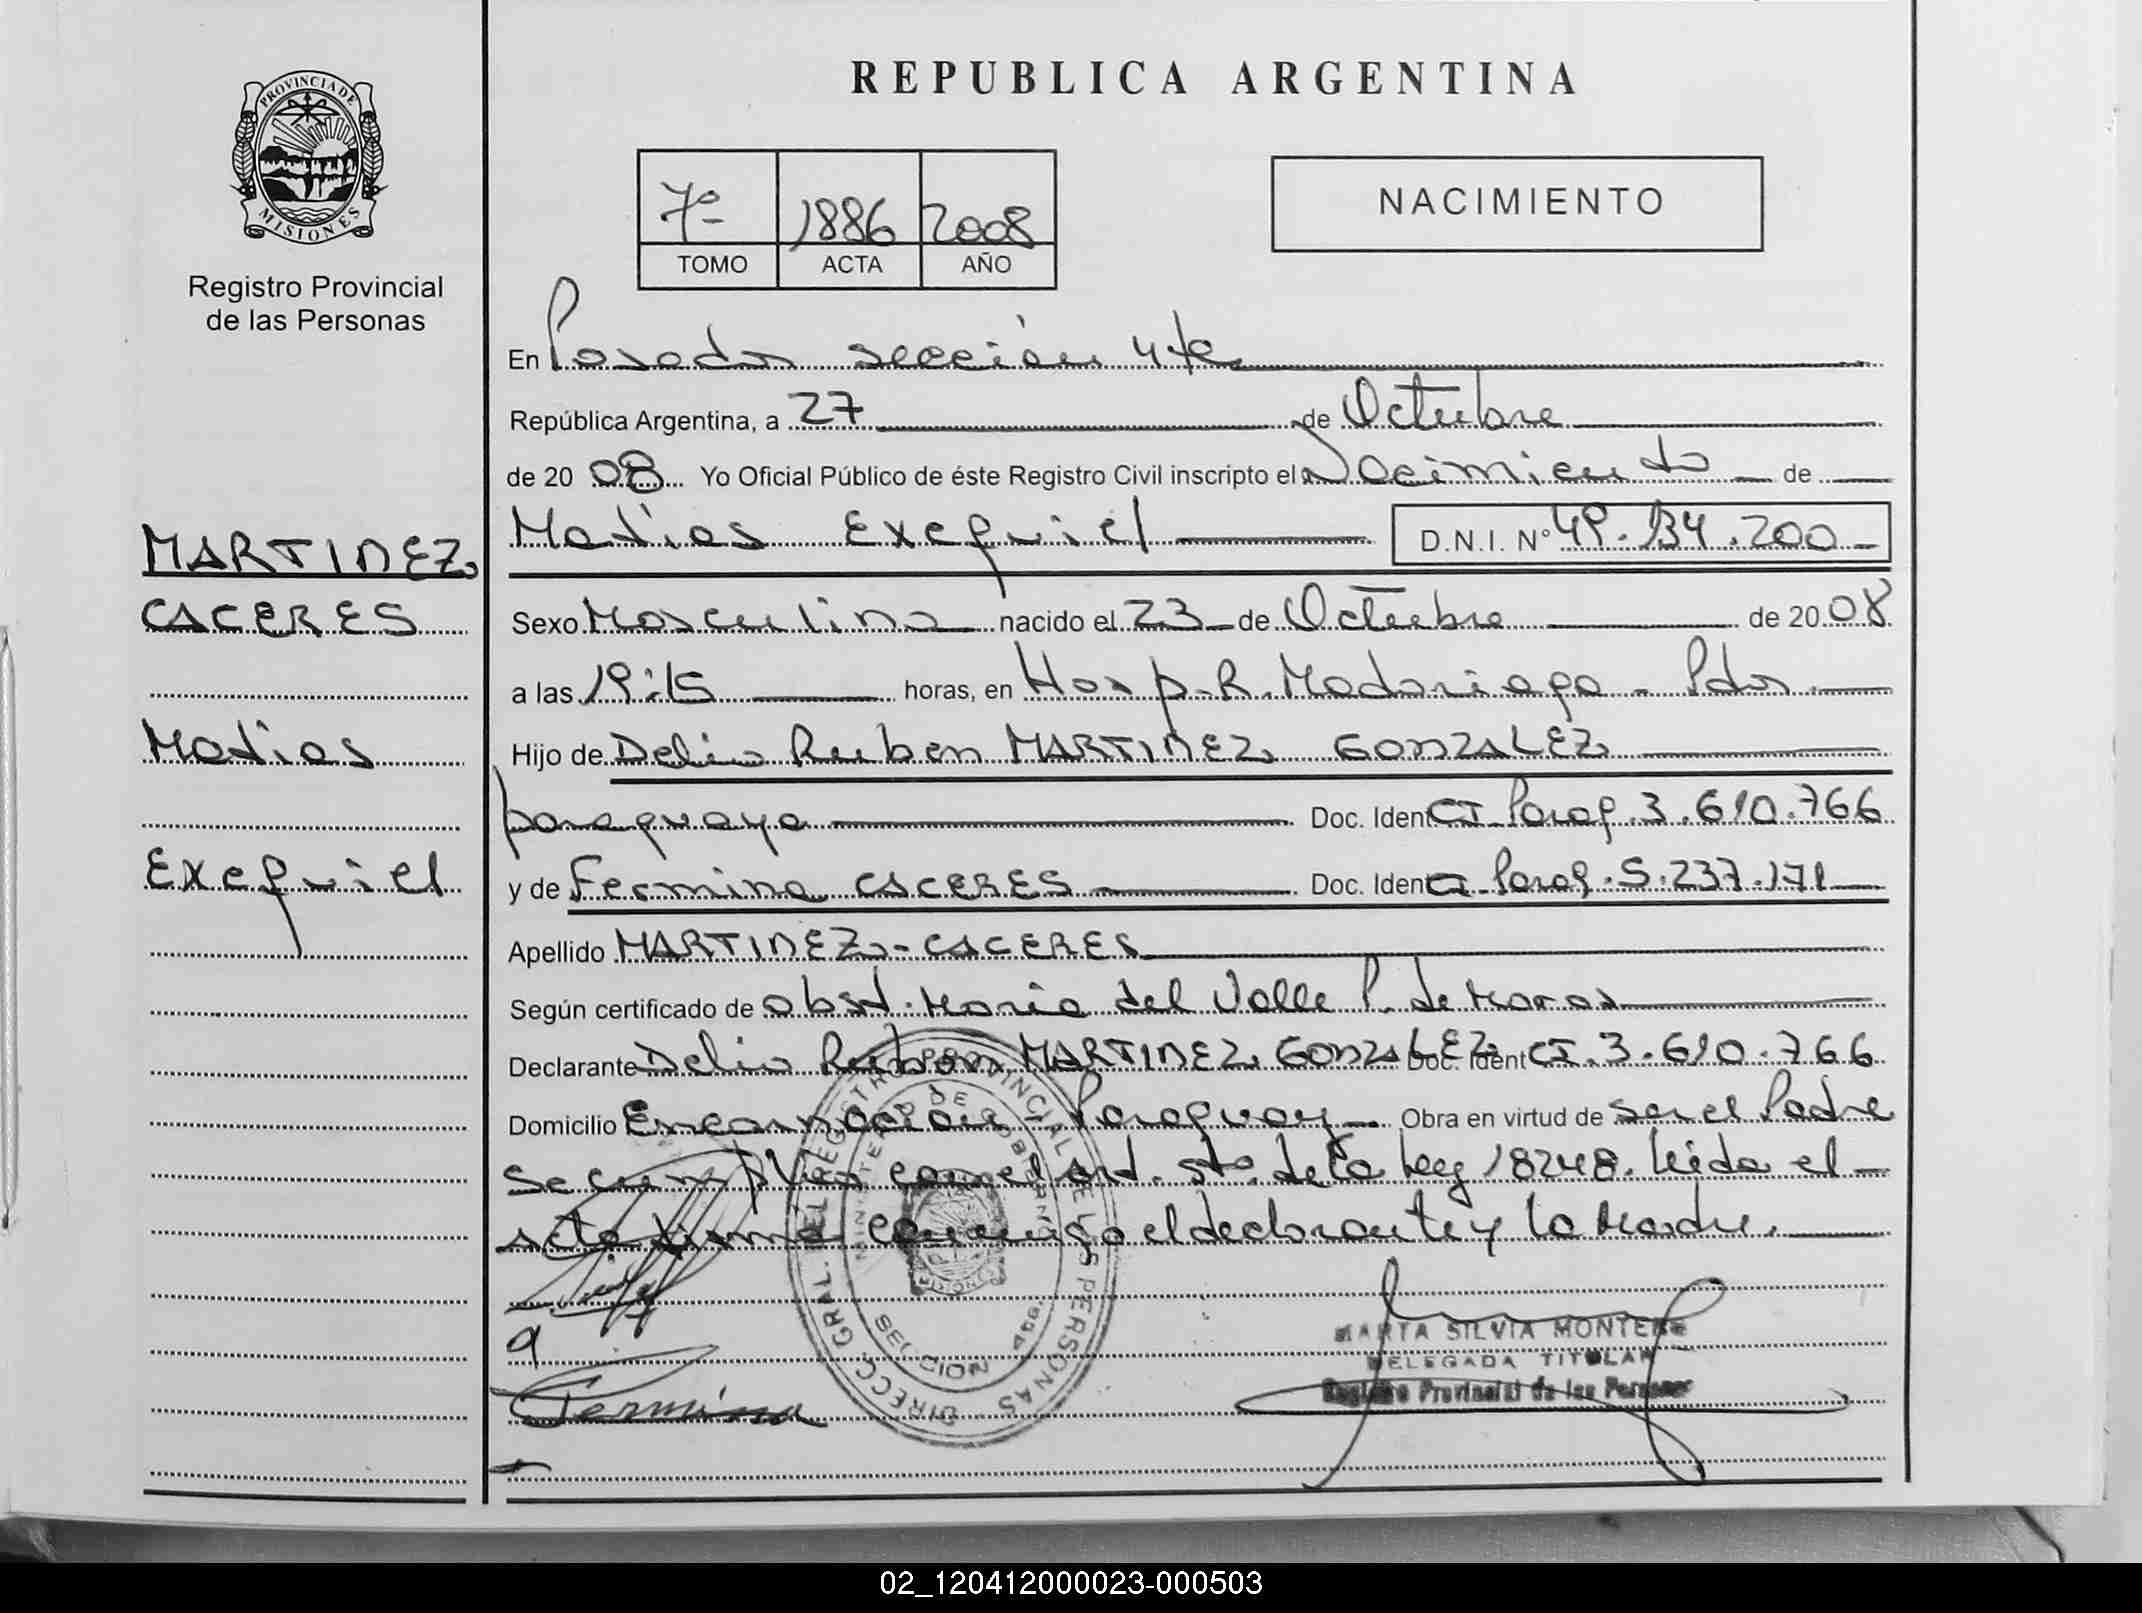 REPUBLICA ARGENTINA
PROVINCIA DE
MISIONES
Registro Provincial
de las Personas
7º 1886 2008
TOMO ACTA AÑO
NACIMIENTO
En Posadas sección 4ta
República Argentina, a 27 de Octubre
de 20 08 Yo Oficial Público de éste Registro Civil inscripto el Nacimiento de
Matias Exequiel D.N.I. Nº 49.134.200
MARTINEZ
CACERES
Matias
Exequiel
Sexo Masculino nacido el 23 de Octubre de 20 08
a las 19:15 horas, en Hosp. R. Madariaga - Pdas.
Hijo de Delio Ruben MARTINEZ GONZALEZ
paraguaya Doc. Ident CI Parag. 3.610.766
y de Fermina CACERES Doc. Ident CI Parag. 5.237.171
Apellido MARTINEZ - CACERES
Según certificado de obst. Maria del Valle P. de Moras
Declarante Delio Ruben MARTINEZ GONZALEZ Doc. Ident CI. 3.610.766
Domicilio Encarnación Paraguay Obra en virtud de ser el Padre
se cumplió con el art. 5to. de la Ley 18248. Leída el
acta firma conmigo el declarante y la Madre.
DIRECC. GRAL. DEL REGISTRO PROVINCIAL DE LAS PERSONAS
MINISTERIO DE GOBIERNO
SECCION
Fermina
MARTA SILVIA MONTERO
DELEGADA TITULAR
Registro Provincial de las Personas
02_120412000023-000503